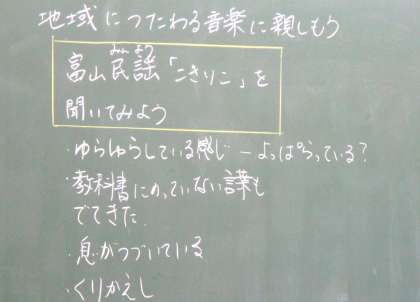 地域につたわる音楽に親しもう
みんよう
富山民謡「こきりこ」を
聞いてみよう
・ゆらゆらしている感じ－よっぱらっている?
・教科書にのっていない言葉も
でてきた
・息がつづいている
・くりかえし